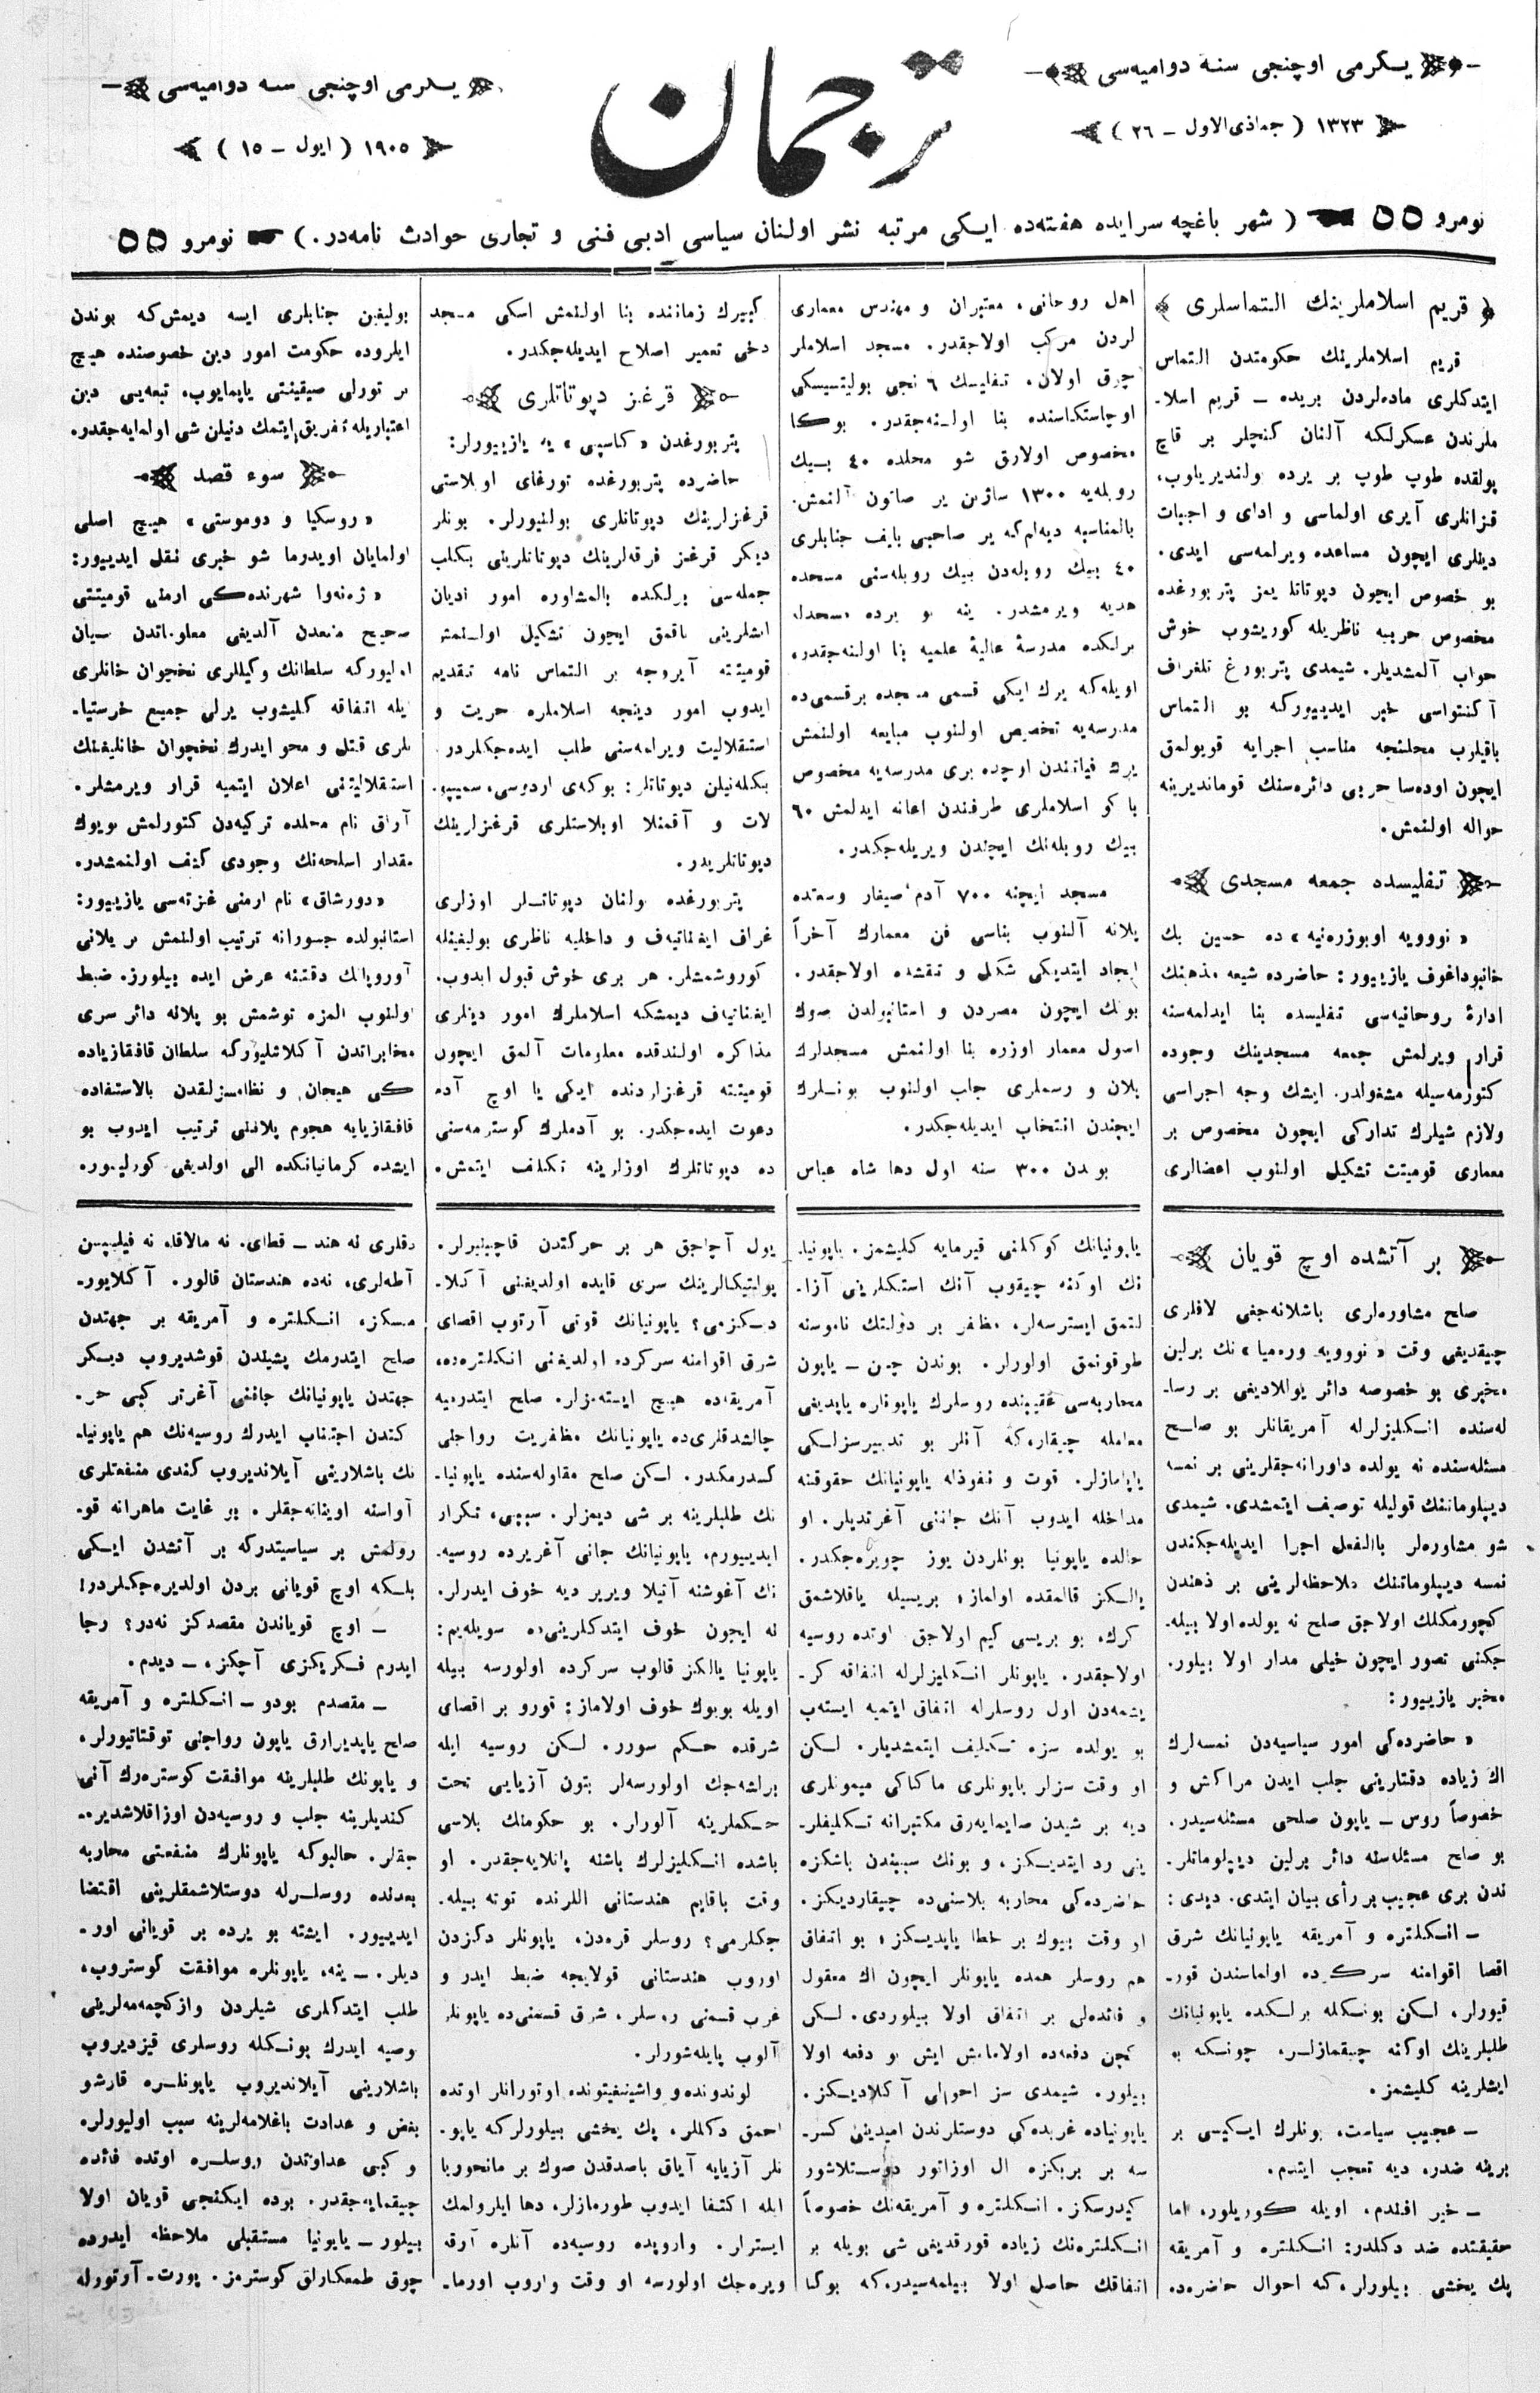 يكرمی اوچنجی سنه دواميه‌سی
١٣٢٣ ( جماذی الاول ــ ٢٦ )
ترجمان
يكرمی اوچنجی سنه دواميه‌سی
١٩٠٥ ( ايول ــ ١٥ )
نومرو ٥٥ ( شهر باغچه سرايده هفته‌ده ايكی مرتبه نشر اولنان سياسی ادبی فنی و تجاری حوادث نامه‌در. ) نومرو ٥٥
﴿ قريم اسلاملرينك التماسلری ﴾
قريم اسلاملرينك حكومتدن التماس
ايتدكلری ماده‌لردن بريده ــ قريم اسلا-
ملرندن عسكرلكه آلنان كنچلر بر قاچ
پولقده طوپ طوپ بر يرده ولنديريلوب،
قزانلری آيری اولماسی و ادای و اجبات
دينلری ايچون مساعده ويرلمه‌سی ايدی.
بو خصوص ايچون دپوتاتلريمز پتربورغده
مخصوص حربيه ناظريله كوريشوب خوش
جواب آلمشديلر. شيمدی پتربورغ تلغراف
آكنتواسی خبر ايدييوركه بو التماس
باقيلرب محلنجه مناسب اجرايه قويولمق
ايچون اوده‌سا حربی دائره‌سنك قوماندیرينه
حواله اولنمش.
تفليسده جمعه مسجدی
« نوويه اوبوزره‌نيه » ده حسين بك
خانبوداغوف يازييور: حاضرده شيعه مذهبنك
ادارۀ روحانيه‌سی تفليسده بنا ايدلمه‌سنه
قرار ويرلمش جمعه مسجدينك وجوده
كتورمه‌سيله مشغولدر. ايشك وجه اجراسی
ولازم شيلرك تداركی ايچون مخصوص بر
معماری قوميتت تشكيل اولنوب اعضالری
اهل روحانی، معتبران و مهندس معماری
لردن مركب اولاجقدر. مسجد اسلاملر
چوق اولان، تفليسك ٦ نجی بوليتسيسكی
اوچاستكاسنده بنا اولنه‌جقدر. بوكا
مخصوص اولارق شو محلده ٤٠ بيك
روبله‌يه ١٣٠٠ ساژين ير صاتون آلنمش.
بالمناسبه ديه‌لم‌كه ير صاحبی بايف جنابلری
٤٠ بيك روبله‌دن بيك روبله‌سنی مسجده
هديه ويرمشدر. ينه بو يرده مسجدله
برلكده مدرسۀ عاليۀ علميه بنا اولنه‌جقدر،
اويله‌كه يرك ايكی قسمی مسجده بر قسمی‌ده
مدرسه‌يه تخصيص اولنوب مبايعه اولنمش
يرك فياتندن اوچده بری مدرسه‌يه مخصوص
باكو اسلاملری طرفندن اعانه ايدلمش ٦٠
بيك روبله‌نك ايچندن ويريله‌جكدر.
مسجد ايچنه ٧٠٠ آدم صيغار وسعتده
پلانه آلنوب بناسی فن معمارك آخراً
ايجاد ايتديكی شكل و نقشده اولاجقدر.
بونك ايچون مصردن و استانبولدن صوك
اصول معمار اوزره بنا اولنمش مسجدلرك
پلان و رسملری جلب اولنوب بونلرك
ايچندن انتخاب ايديله‌جكدر.
بوندن ٣٠٠ سنه اول دها شاه عباس
كبيرك زماننده بنا اولنمش اسكی مسجد
دخی تعمير اصلاح ايديله‌جكدر.
قرغز دپوتاتلری
پتربورغدن « كاسپی » يه يازييورلر:
حاضرده پتربورغده تورغای اوبلاستی
قرغزلرينك دپوتاتلری بولنيورلر. بونلر
ديكر قرغز فرقه‌لرينك دپوتاتلرينی بكلب
جمله‌سی برلكده بالمشاوره امور اديان
ايشلرينی باقمق ايچون تشكيل اولنمش
قوميتته آيروجه بر التماس نامه تقديم
ايدوب امور دينجه اسلاملره حريت و
استقلاليت ويرلمه‌سنی طلب ايده‌جكلردر.
بكله‌نيلن دپوتاتلر: بوكه‌ی اردوسی، سميپو-
لات و آقمنلا اوبلاستلری قرغزلرينك
دپوتاتلريدر.
پتربورغده بولنان دپوتاتلر اوزلری
غراف ايغناتيه‌ف و داخليه ناظری بوليغينله
كوروشمشلر. هر بری خوش قبول ايدوب،
ايغناتيه‌ف ديمشكه اسلاملرك امور دينلری
مذاكره اولندقده معلومات آلمق ايچون
قوميتته قرغزلردنده ايكی يا اوچ آدم
دعوت ايده‌جكدر. بو آدملرك كوسترمه‌سنی
ده دپوتاتلرك اوزلرينه تكليف ايتمش.
بوليغين جنابلری ايسه ديمش‌كه بوندن
ايلروده حكومت امور دين خصوصنده هيچ
بر تورلی صيقينتی ياپمايوب، تبعه‌يی دين
اعتباريله تفريق ايتمك دنيلن شی اولمايه‌جقدر.
سوء قصد
« روسكيا و دوموستی » هيچ اصلی
اولمايان اويدرما شو خبری نقل ايدييور:
« ژه‌نه‌وا شهرنده‌كی ارمنی قوميتتی
صحيح منبعدن آلديغی معلوماتدن بيان
اوليوركه سلطانك وكيللری نخجوان خانلری
ايله اتفاقه كليشوب يرلی جميع خرستيا-
نلری قتل و محو ايدرك نخجوان خانليغنك
استقلاليتنی اعلان ايتميه قرار ويرمشلر.
آراق نام محلده تركيه‌دن كتورلمش بويوك
مقدار اسلحه‌نك وجودی كشف اولنمشدر.
« دورشاق » نام ارمنی غزته‌سی يازييور:
استانبولده جسورانه ترتيب اولنمش بر پلانی
آوروپانك دقتنه عرض ايده بيلورز. ضبط
اولنوب المزه توشمش بو پلانه دائر سری
مخابراتدن آكلاشليوركه سلطان قافقازياده
كی هيجان و نظامسزلقدن بالاستفاده
قافقازيايه هجوم پلاننی ترتيب ايدوب بو
ايشده كرمانيانكده الی اولديغی كورلييور.
بر آتشده اوچ قويان
صلح مشاوره‌لری باشلانه‌جغی لافلری
چيقديغی وقت « نوويه وره‌ميا » نك برلين
مخبری بو خصوصه دائر يوللاديغی بر رسا-
له‌سنده انكليزلرله آمريقانلر بو صلح
مسئله‌سنده نه يولده داورانه‌جقلرينی بر نمسه
ديپلوماتنك قوليله توصيف ايتمشدی. شيمدی
شو مشاوره‌لر بالفعل اجرا ايديله‌جكندن
نمسه ديپلوماتنك ملاحظه‌لرينی بر ذهندن
كچورمكلك اولاجق صلح نه يولده اولا بيله-
جكنی تصور ايچون خيلی مدار اولا بيلور.
مخبر يازييور:
« حاضرده‌كی امور سياسيه‌دن نمسه‌لرك
اك زياده دقتلرينی جلب ايدن مراكش و
خصوصاً روس ــ ياپون صلحی مسئله‌سيدر.
بو صلح مسئله‌سنه دائر برلين ديپلوماتلر-
ندن بری عجيب بر رأی بيان ايتدی. ديدی:
ــ انكلتره و آمريقه ياپونيانك شرق
اقصا اقوامنه سركرده اولماسندن قور-
قيورلر، لسكن بونكله برلكده ياپونيانك
طلبلرينك اوكنه چيقمازلر. چونكه بو
ايشلرينه كليشمز.
ــ عجيب سياست، بونلرك ايكيسی بر
برينه ضدر، ديه تعجب ايتدم.
ــ خير افندم، اويله كوريلور، اما
حقيقتده ضد دكلدر: انكلتره و آمريقه
پك يخشی بيلورلر، كه احوال حاضره‌ده
ياپونيانك كوكلنی قيرمايه كليشمز. ياپونيا-
نك اوكنه چيقوب آنك استكلرينی آزا-
لتمق ايسترسه‌لر، مظفر بر دولتك ناموسنه
طوقونمق اولورلر. بوندن چين ــ ياپون
محاربه‌سی عقيبنده روسلرك ياپونلره ياپديغی
معامله چيقار، كه آنلر بو تدبيرسزلكی
ياپامازلر. قوت و نفوذله ياپونيانك حقوقنه
مداخله ايدوب آنك جاننی آغرتديلر. او
حالده ياپونيا بونلردن يوز چويره‌جكدر.
يالكز قالمقده اولماز؛ بريسيله ياقلاشمق
كرك، بو بريسی كيم اولاجق اوتده روسيه
اولاجقدر. ياپونلر انكليزلرله اتفاقه كر-
يشمه‌دن اول روسلرله اتفاق ايتميه ايسته‌ب
بو يولده سزه تكليف ايتمشديلر. لسكن
او وقت سزلر ياپونلری ماكاكی ميمونلری
ديه بر شيدن صايمايه‌رق مكتبرانه تكليفلر-
ينی رد ايتديكز، و بونك سببندن باشكزه
حاضرده‌كی محاربه بلاسنی‌ده چيقارديكز.
او وقت بيوك بر خطا ياپديكز؛ بو اتفاق
هم روسلر همده ياپونلر ايچون اك معقول
و فائده‌لی بر اتفاق اولا بيلوردی. لكن
كچن دفعه‌ده اولامامش ايش بو دفعه اولا
بيلور. شيمدی سز احوالی آكلاديكز.
ياپونياده غربده‌كی دوستلرندن اميدينی كسر-
سه بر بريكزه ال اوزاتور دوستلاشور
كيدرسكز. انكلتره و آمريقه‌نك خصوصاً
انكلتره‌نك زياده قورقديغی شی بويله بر
اتفاقك حاصل اولا بيلمه‌سيدر، كه بوكا
يول آچاجق هر بر حركتدن قاچينيرلر.
پوليتيكالرينك سری قايده اولديغنی آكلا-
ديكزمی؟ ياپونيانك قوتی آرتوب اقصای
شرق اقوامنه سركرده اولديغنی انكلتره‌ده،
آمريقه‌ده هيچ ايسته‌مزلر. صلح ايتدرميه
چالشدقلری‌ده ياپونيانك مظفريت رواجلی
كسدرمكدر. لسكن صلح مقاوله‌سنده ياپونيا-
نك طلبلرينه بر شی ديمزلر. سببی، تكرار
ايدييورم، ياپونيانك جانی آغريرده روسيه-
نك آغوشنه آتيلا ويرير ديه خوف ايدرلر.
نه ايچون خوف ايتدكلرينی‌ده سويله‌يم:
ياپونيا يالكز قالوب سركرده اولورسه بيله
اويله بويوك خوف اولاماز: قورو بر اقصای
شرقده حكم سورر. لسكن روسيه ايله
برلشه‌جك اولورسه‌لر بتون آزيايی تحت
حكملرينه آلورلر. بو حكومتك بلاسی
باشده انكليزلرك باشنه پاتلايه‌جقدر. او
وقت باقايم هندستانی اللرنده توته بيله-
جكلرمی؟ روسلر قره‌دن، ياپونلر دكزدن
اوروب هندستانی قولايجه ضبط ايدر و
غرب قسمنی روسلر، شرق قسمنی‌ده ياپونلر
آلوب پايله‌شورلر.
لوندونده و واشينغيتونده اوتورانلر اوتده
احمق دكللر، پك يخشی بيلورلركه ياپو-
نلر آزيايه آياق باصدقدن صوك بر مانجوريا
ايله اكتفا ايدوب طورمازلر، دها ايلرولمك
ايسترلر. واروپده روسيه‌ده آنلره آرقه
ويره‌جك اولورسه او وقت واروب اورما-
دقلری نه هند ــ قطای، نه مالاقه، نه فيليپين
آطه‌لری، نه‌ده هندستان قالور. آكلايور-
مسكز، انكلتره و آمريقه بر جهتدن
صلح ايتدرمك پشيندن قوشديروب ديكر
جهتدن ياپونيانك جاننی آغرتر كبی حر-
كتدن اجتناب ايدرك روسيه‌نك هم ياپونيا-
نك باشلارينی آيلانديروب كندی منفعتلری
آواسنه اوينانه‌جقلر. بو غايت ماهرانه قو-
رولمش بر سياسيتدركه بر آتشدن ايكی
بلكه اوچ قويانی بردن اولديره‌جكلردر!
ــ اوچ قوياندن مقصدكز نه‌در؟ رجا
ايدرم فكريكزی آچكز، ــ ديدم.
ــ مقصدم بودو ــ انكلتره و آمريقه
صلح ياپديرارق ياپون رواجنی توقتاتيورلر،
و ياپونك طلبلرينه موافقت كوستره‌رك آنی
كنديلرينه جلب و روسيه‌دن اوزاقلاشديره-
جقلر. حالبوكه ياپونلرك منفعتی محاربه
بعدنده روسلرله دوستلاشمقلرينی اقتضا
ايدييور. ايشته بو يرده بر قويانی اور-
ديلر. ــ ينه، ياپونلره موافقت كوستروب،
طلب ايتدكلری شيلردن وازكچمه‌مه‌لرينی
وصيه ايدرك بونكله روسلری قيزديروب
باشلارينی آيلانديروب ياپونلره قارشو
بغض و عداوت باغلامه‌لرينه سبب اوليورلر.
و كبی عداوتدن روسلره اوتده فائده
چيقمايه‌جقدر. بوده ايكنجی قويان اولا
بيلور ــ ياپونيا مستقبلی ملاحظه ايدرده
چوق طمعكارلق كوسترمز. پورت-آرتورله